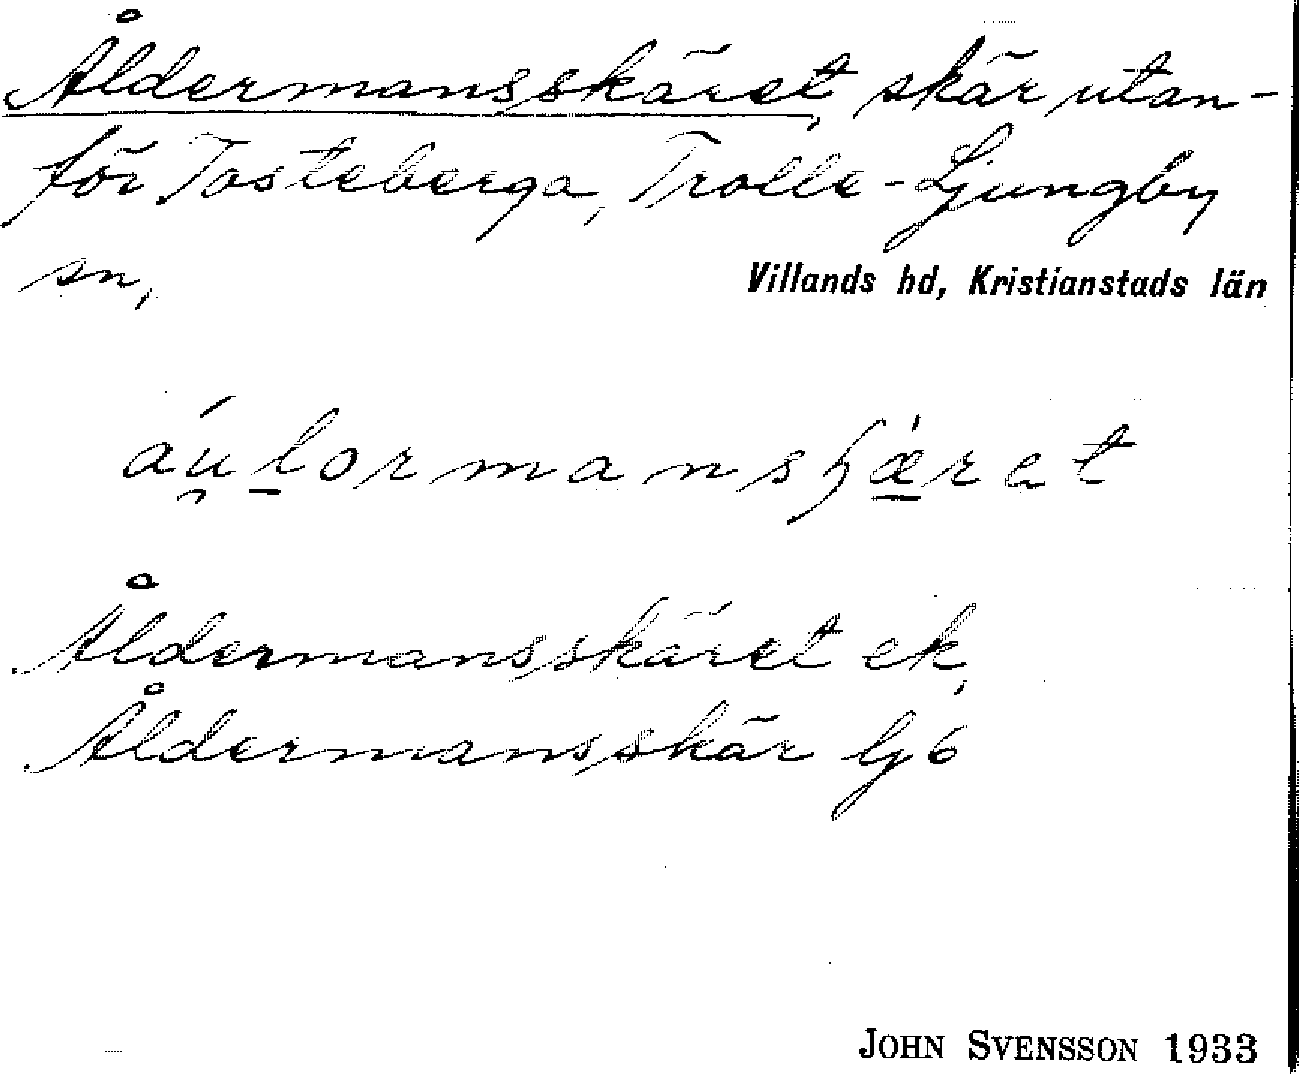 Åldermansskäret, skär utan-
för Tosteberga, Trolle-Ljungby
sn,
Villands hd, Kristianstads län
Åldermansskäret ek,
Åldermansskär lj6
JOHN SVENSSON 1933